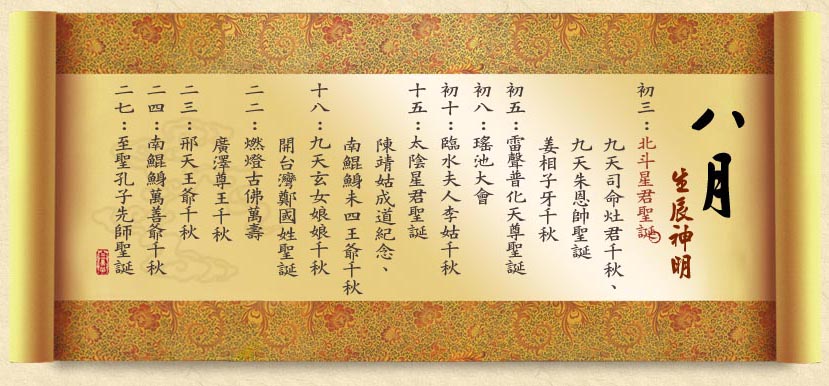 八月
生辰神明
初三：北斗星君聖誕
九天司命灶君千秋、
九天朱恩帥聖誕
姜相子牙千秋
初五：雷聲普化天尊聖誕
初八：瑤池大會
初十：臨水夫人李姑千秋
十五：太陰星君聖誕
陳靖姑成道紀念、
南鯤鯓未四王爺千秋
十八：九天玄女娘娘千秋
開台灣鄭國姓聖誕
二二：燃燈古佛萬壽
廣澤尊王千秋
二三：邢天王爺千秋
二四：南鯤鯓萬善爺千秋
二七：至聖孔子先師聖誕